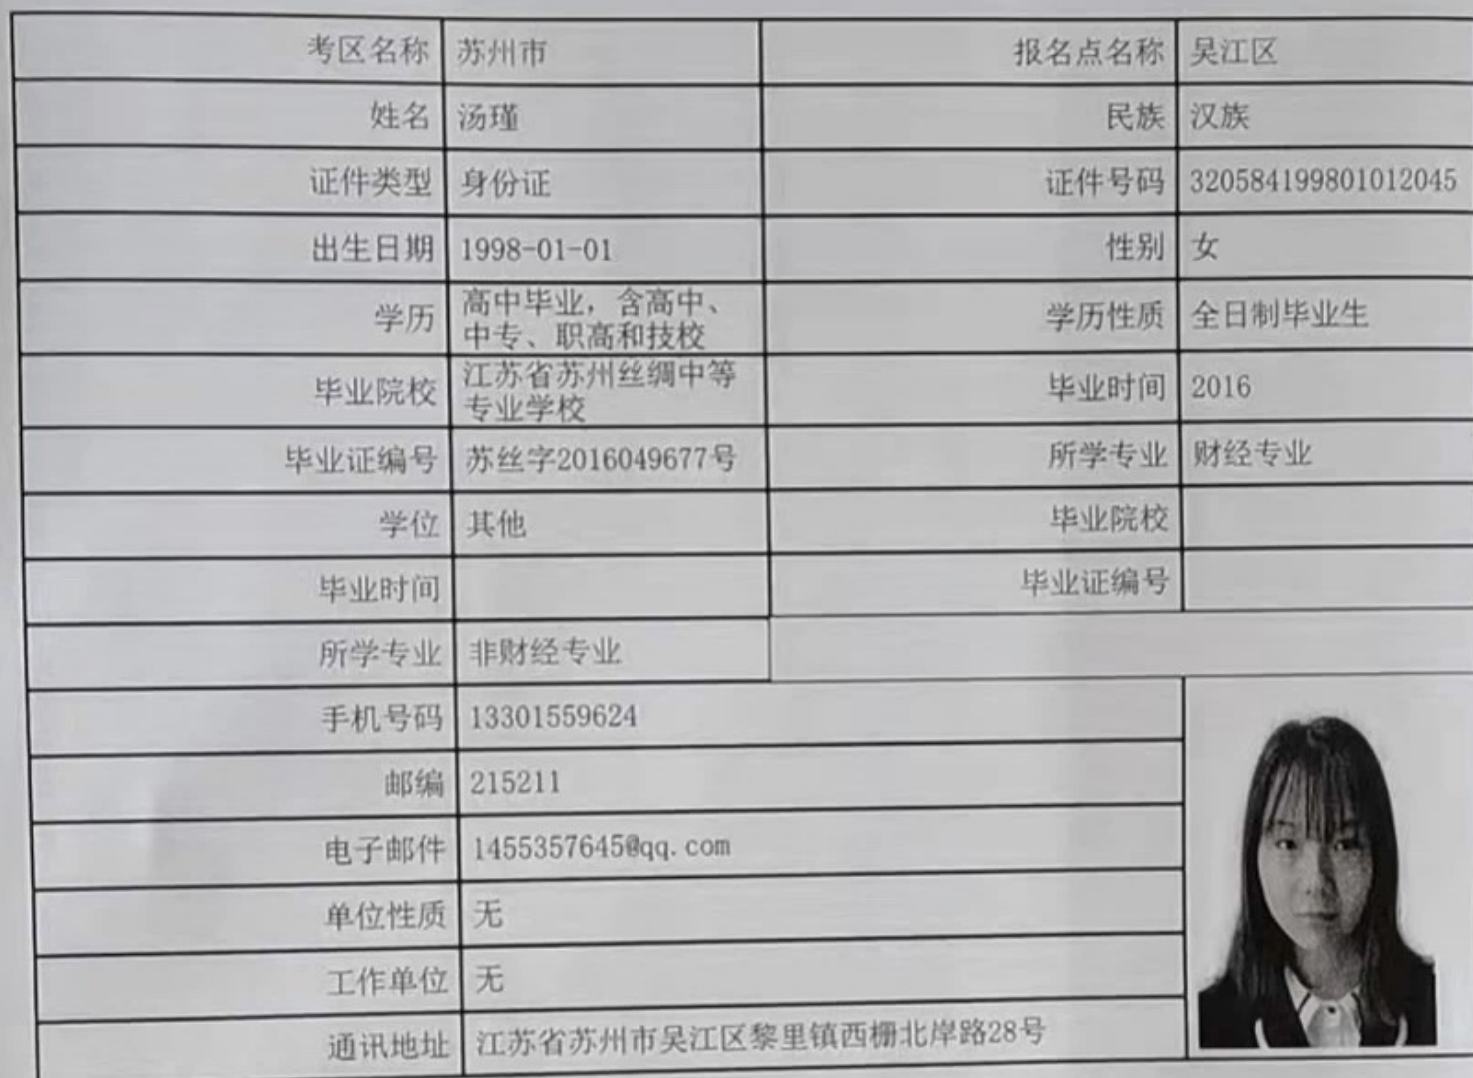 考区名称 苏州市 报名点名称 吴江区
姓名 汤瑾 民族 汉族
证件类型 身份证 证件号码 320584199801012045
出生日期 1998-01-01 性别 女
学历 高中毕业，含高中、 学历性质 全日制毕业生
中专、职高和技校
毕业院校 江苏省苏州丝绸中等 毕业时间 2016
专业学校
毕业证编号 苏丝字2016049677号 所学专业 财经专业
学位 其他 毕业院校
毕业时间 毕业证编号
所学专业 非财经专业
手机号码 13301559624
邮编 215211
电子邮件 1455357645@qq.com
单位性质 无
工作单位 无
通讯地址 江苏省苏州市吴江区黎里镇西栅北岸路28号